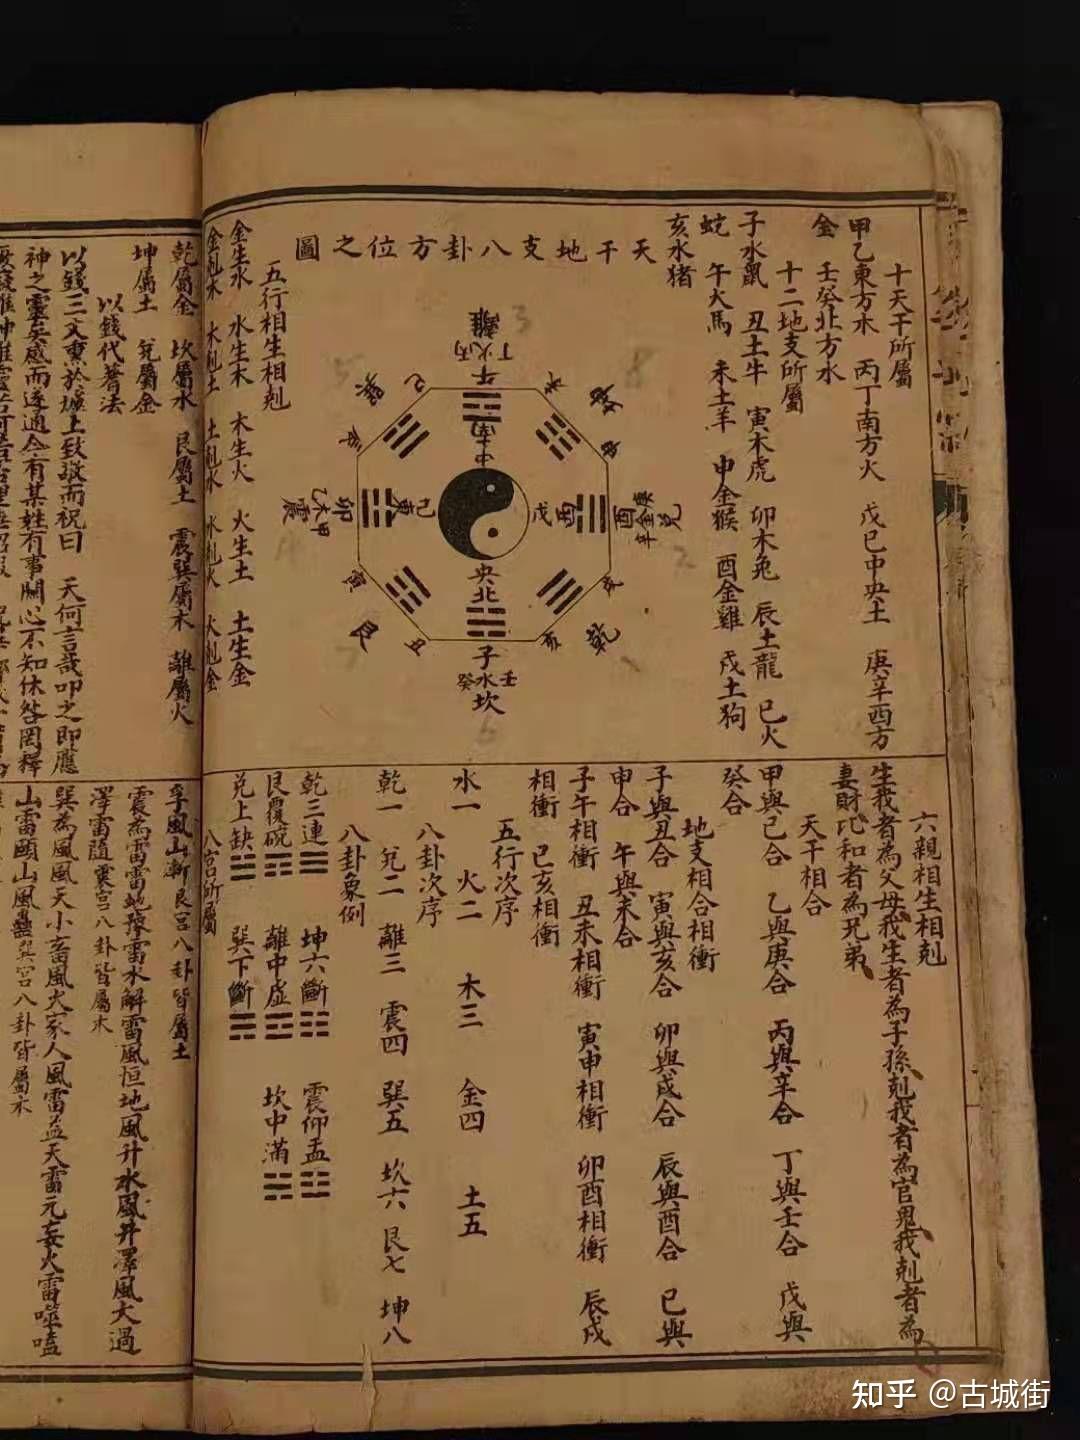 十天干所屬
甲乙東方木　丙丁南方火　戊巳中央土　庚辛西方
金　壬癸北方水
十二地支所屬
子水鼠　丑土牛　寅木虎　卯木兔　辰土龍　巳火
蛇　午火馬　未土羊　申金猴　酉金雞　戌土狗
亥水猪
天干地支八卦方位之圖
離
丁火丙
午
南
中
巽
巳
未
坤
申
乙木甲
震
卯
東
己
戊
酉
酉
庚金辛
兌
央
北
寅
艮
丑
子
癸水壬
坎
亥
乾
戌
五行相生相剋
金生水　水生木　木生火　火生土　土生金
金剋木　木剋土　土剋水　水剋火　火剋金
六親相生相剋
生我者為父母我生者為子孫剋我者為官鬼我剋者為
妻財比和者為兄弟
天干相合
甲與己合　乙與庚合　丙與辛合　丁與壬合　戊與
癸合
地支相合相衝
子與丑合　寅與亥合　卯與戌合　辰與酉合　巳與
申合　午與未合
子午相衝　丑未相衝　寅申相衝　卯酉相衝　辰戌
相衝　巳亥相衝
五行次序
水一　火二　木三　金四　土五
八卦次序
乾一　兌二　離三　震四　巽五　坎六　艮七　坤八
八卦象例
乾三連☰　坤六斷☷　震仰盂☳
艮覆碗☶　離中虛☲　坎中滿☵
兌上缺☱　巽下斷☴
八宮所屬
乾屬金　坎屬水　艮屬土　震巽屬木　離屬火
坤屬土　兌屬金
以錢代蓍法
以錢三文熏於爐上致敬而祝曰　天何言哉叩之即應
神之靈矣感而遂通今有某姓有事關心不知休咎罔釋
孚風山漸艮宮八卦皆屬土
震為雷雷地豫雷水解雷風恒地風升水風井澤風大過
澤雷隨震宮八卦皆屬木
巽為風風天小畜風火家人風雷益天雷无妄火雷噬嗑
山雷頤山風蠱巽宮八卦皆屬木
知乎 @古城街